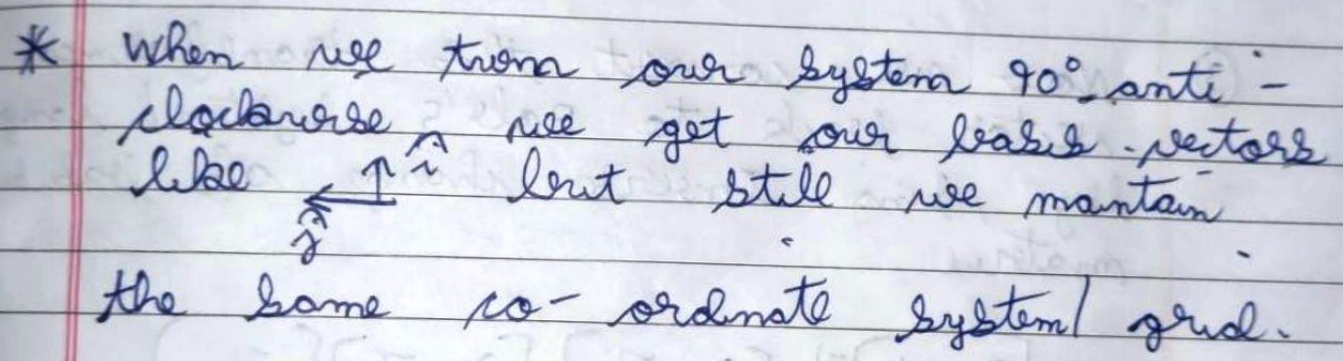 * When we turn our system 90° anti-
clockwise we get our basis vectors
like î but still we maintain
ĵ
the same co-ordinate system/ grid.